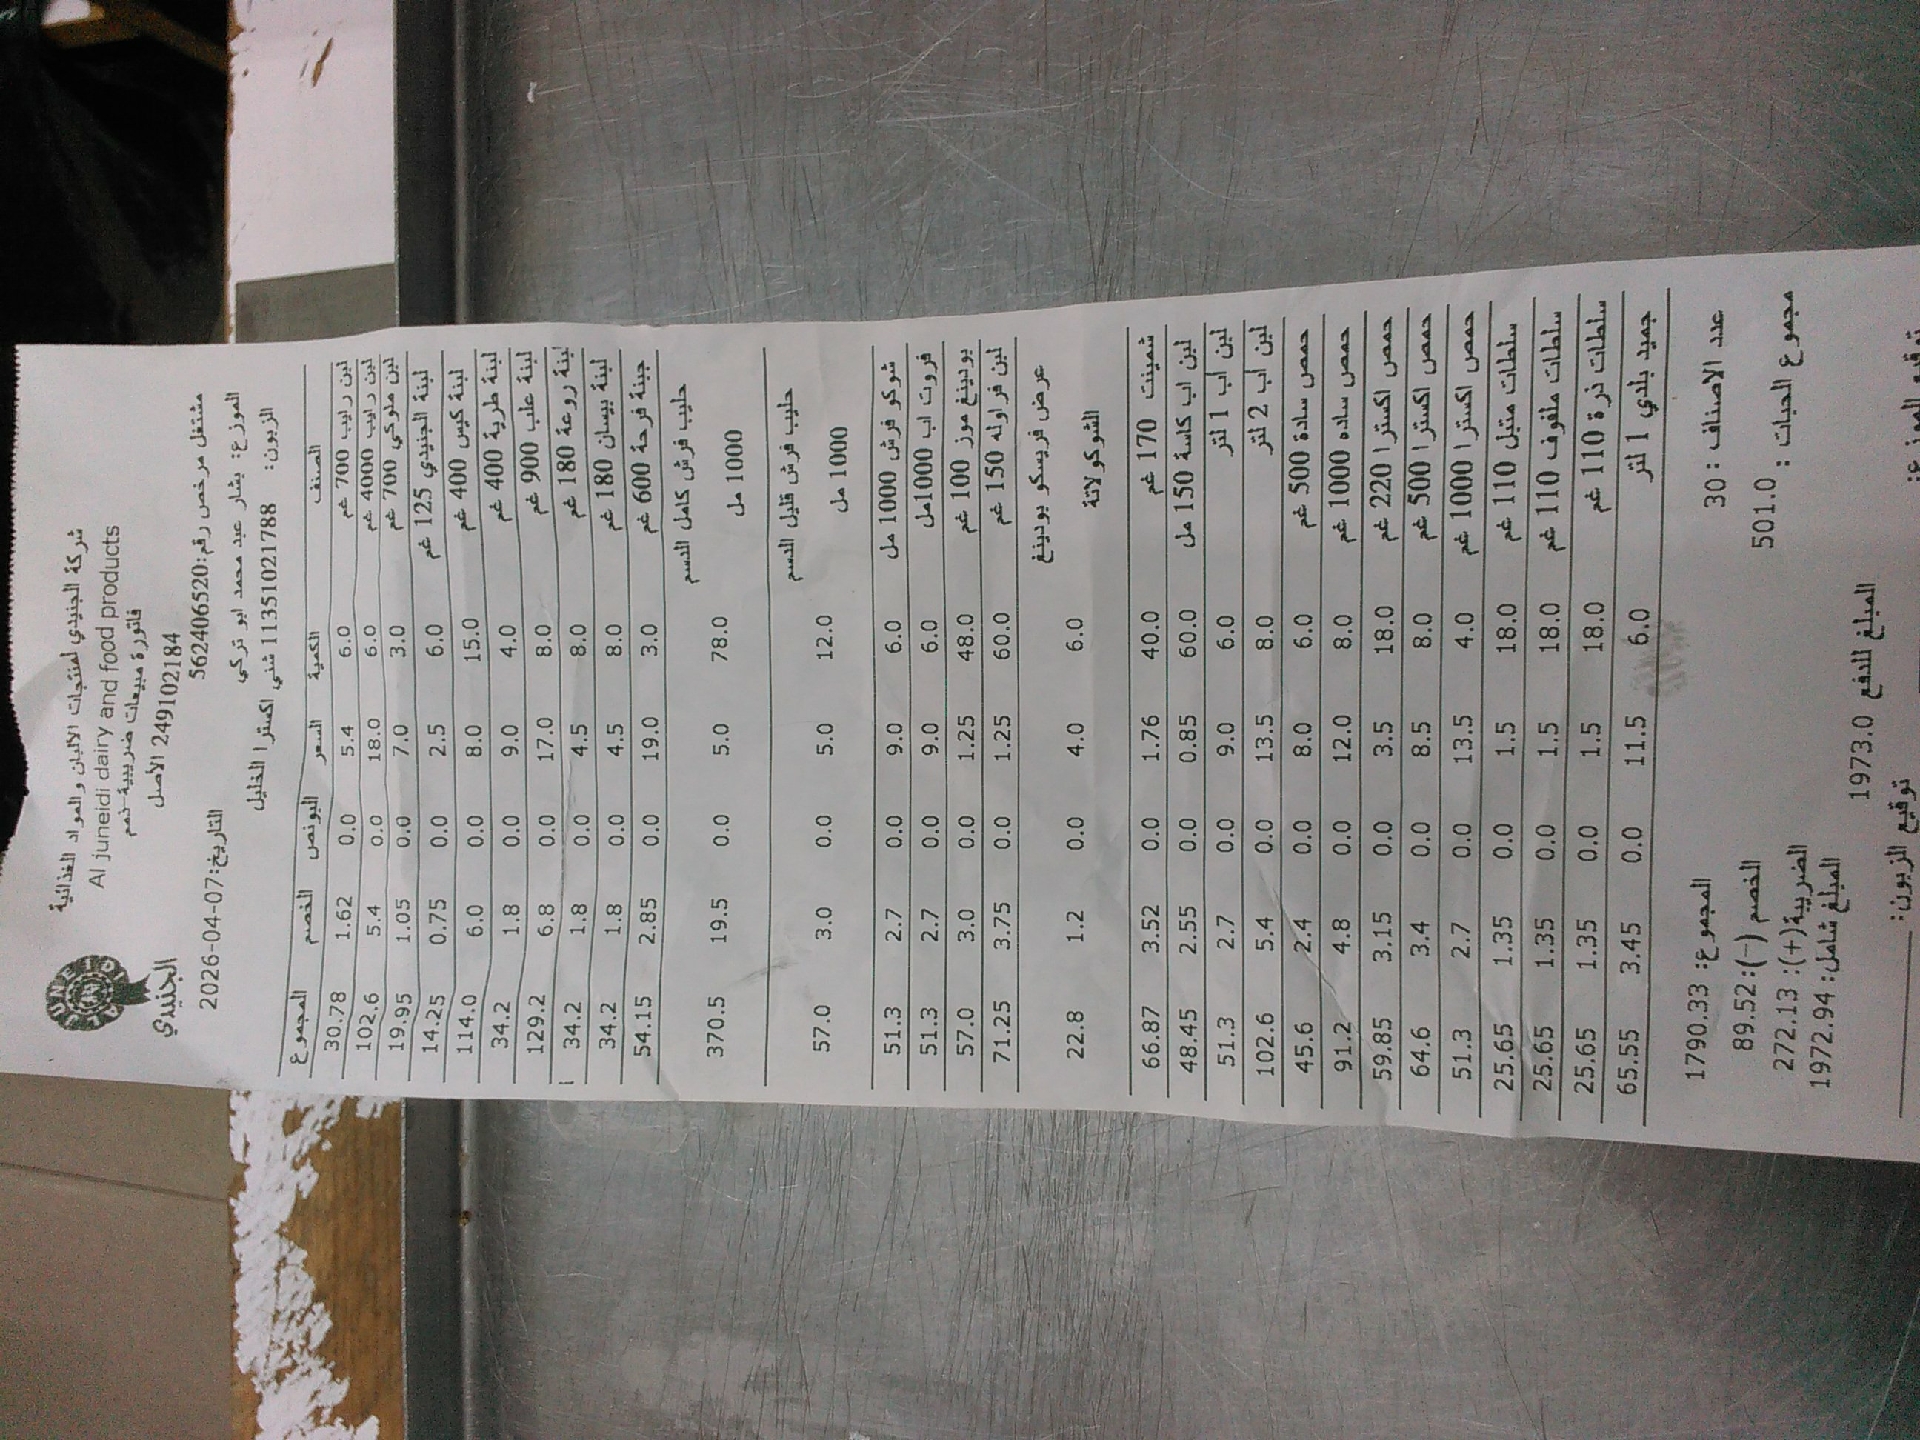 شركة الجنيدي لمنتجات الالبان والمواد الغذائية
Al juneidi dairy and food products
فاتورة مبيعات ضريبية-ذمم
2491021​84 الأصل
JUNEIDI
الجنيدي
مشتغل مرخص رقم:562406520
التاريخ:2026-04-07
الموزع: بشار عبد محمد ابو تركي
الزبون: 11351021788 شني اكسترا الخليل
الصنف الكمية السعر البونص الخصم المجموع
لبن رايب 700 غم 6.0 5.4 0.0 1.62 30.78
لبن رايب 4000 غم 6.0 18.0 0.0 5.4 102.6
لبن ملوكي 700 غم 3.0 7.0 0.0 1.05 19.95
لبنة الجنيدي 125 غم 6.0 2.5 0.0 0.75 14.25
لبنة كيس 400 غم 15.0 8.0 0.0 6.0 114.0
لبنة طرية 400 غم 4.0 9.0 0.0 1.8 34.2
لبنة علب 900 غم 8.0 17.0 0.0 6.8 129.2
لبنة روعة 180 غم 8.0 4.5 0.0 1.8 34.2
لبنة بيسان 180 غم 8.0 4.5 0.0 1.8 34.2
جبنة فرحة 600 غم 3.0 19.0 0.0 2.85 54.15
حليب فرش كامل الدسم
1000 مل 78.0 5.0 0.0 19.5 370.5
حليب فرش قليل الدسم
1000 مل 12.0 5.0 0.0 3.0 57.0
شوكو فرش 1000 مل 6.0 9.0 0.0 2.7 51.3
فروت اب 1000مل 6.0 9.0 0.0 2.7 51.3
بودينغ موز 100 غم 48.0 1.25 0.0 3.0 57.0
لبن فراوله 150 غم 60.0 1.25 0.0 3.75 71.25
عرض فريسكو بودينغ
الشوكولاتة 6.0 4.0 0.0 1.2 22.8
شمينت 170 غم 40.0 1.76 0.0 3.52 66.87
لبن اب كاسة 150 مل 60.0 0.85 0.0 2.55 48.45
لبن اب 1 لتر 6.0 9.0 0.0 2.7 51.3
لبن اب 2 لتر 8.0 13.5 0.0 5.4 102.6
حمص سادة 500 غم 6.0 8.0 0.0 2.4 45.6
حمص ساده 1000 غم 8.0 12.0 0.0 4.8 91.2
حمص اكسترا 220 غم 18.0 3.5 0.0 3.15 59.85
حمص اكسترا 500 غم 8.0 8.5 0.0 3.4 64.6
حمص اكسترا 1000 غم 4.0 13.5 0.0 2.7 51.3
سلطات متبل 110 غم 18.0 1.5 0.0 1.35 25.65
سلطات ملفوف 110 غم 18.0 1.5 0.0 1.35 25.65
سلطات ذرة 110 غم 18.0 1.5 0.0 1.35 25.65
جميد بلدي 1 لتر 6.0 11.5 0.0 3.45 65.55
عدد الاصناف : 30 المجموع: 1790.33
مجموع الحبات : 501.0 الخصم (-): 89.52
الضريبة(+): 272.13
المبلغ شامل: 1972.94
المبلغ للدفع 1973.0
توقيع الموزع: توقيع الزبون: